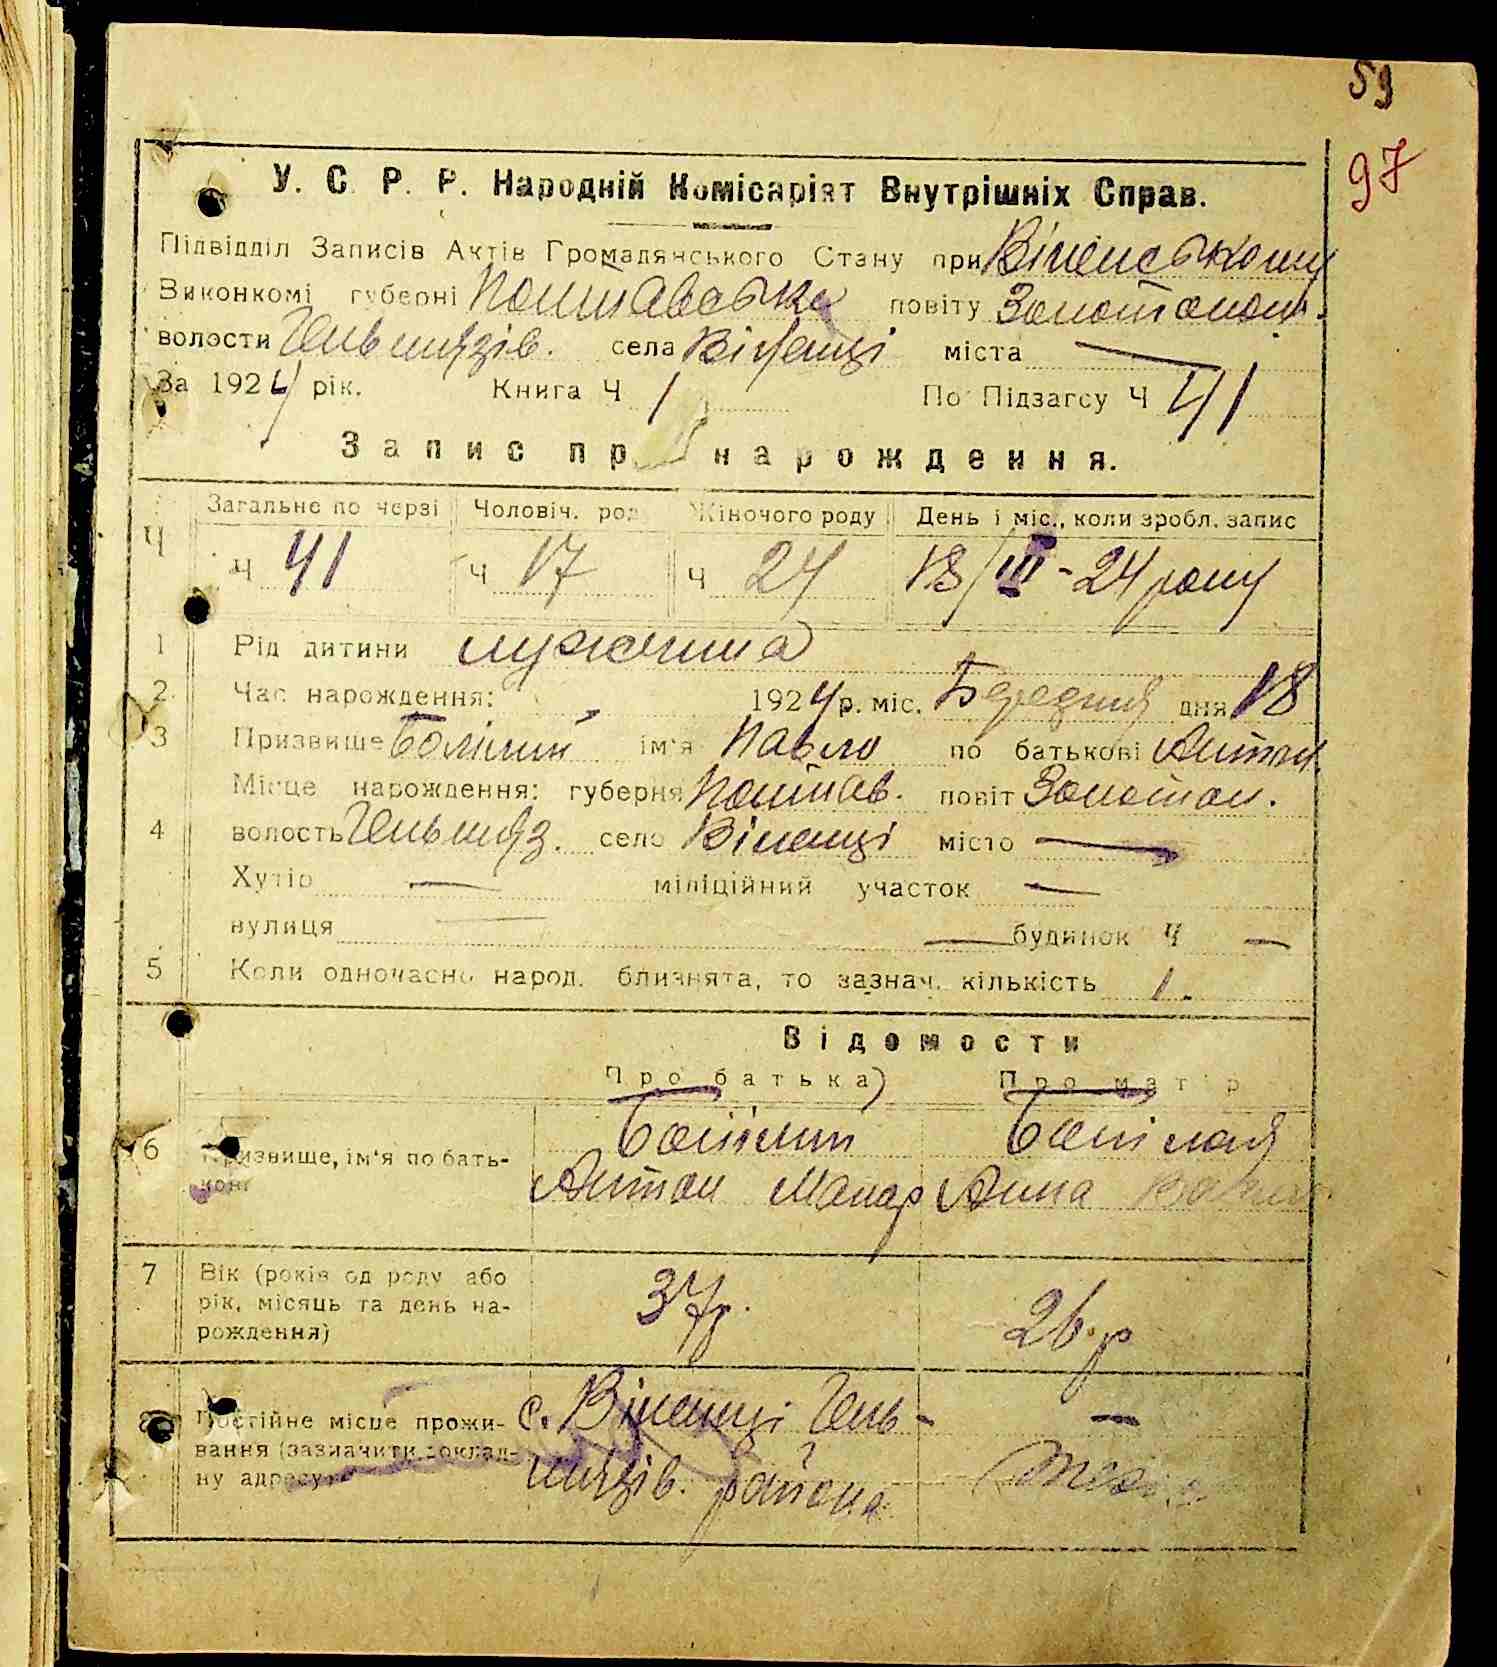 59
97
У. С. Р. Р. Народній Комісаріят Внутрішніх Справ.
Підвідділ Записів Актів Громадянського Стану при Віненському
Виконкомі губерні Полтавська повіту Золотонош.
волости Гельмязів. села Віненці міста —
За 1924 рік. Книга Ч 1 По Підзагсу Ч 41
Запис про народження.
Ч Загальне по черзі Чоловіч. роду Жіночого роду День і міс., коли зробл. запис
Ч 41 Ч 17 Ч 24 18/III - 24 року
1 Рід дитини мужчина
2 Час народження: 1924 р. міс. Березня дня 18
3 Призвище ім'я Павло по батькові Антон.
Місце народження: губерня Полтав. повіт Золотон.
4 волость Гельмяз. село Віненці місто —
Хутір — міліційний участок —
вулиця — — будинок Ч —
5 Коли одночасно народ. близнята, то зазнач. кількість 1.
Відомости
Про батька) Про матір
6 Призвище, ім'я по бать-
кові
Антон Макар Анна
7 Вік (років од роду або
рік, місяць та день на-
рождення)
37 р. 26. р
8 Постійне місце прожи-
вання (зазначити доклад-
ну адресу)
с. Віненці Гель-
мязів. района
—